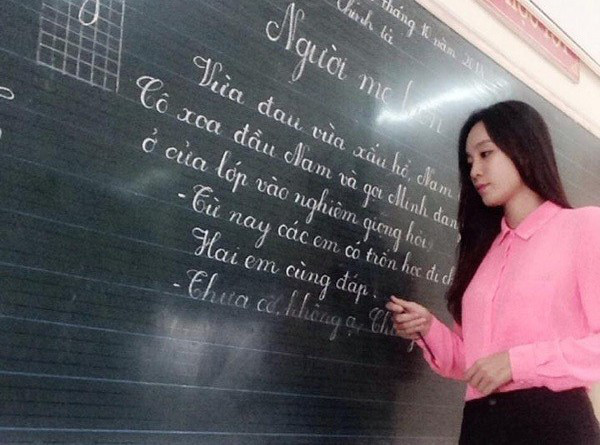 tháng 10 năm 201
Chính tả
Người mẹ hiền
Vừa đau vừa xấu hổ, Nam
Cô xoa đầu Nam và gọi Minh đang
ở cửa lớp vào nghiêm giọng hỏi:
- Từ nay các em có trốn học đi ch
Hai em cùng đáp:
- Thưa cô, không ạ. Ch